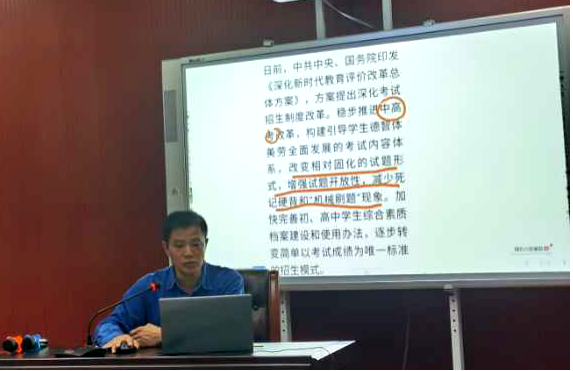 日前，中共中央、国务院印发
《深化新时代教育评价改革总
体方案》，方案提出深化考试
招生制度改革。稳步推进中高
考改革，构建引导学生德智体
美劳全面发展的考试内容体
系，改变相对固化的试题形
式，增强试题开放性，减少死
记硬背和“机械刷题”现象。加
快完善初、高中学生综合素质
档案建设和使用办法，逐步转
变简单以考试成绩为唯一标准
的招生模式。